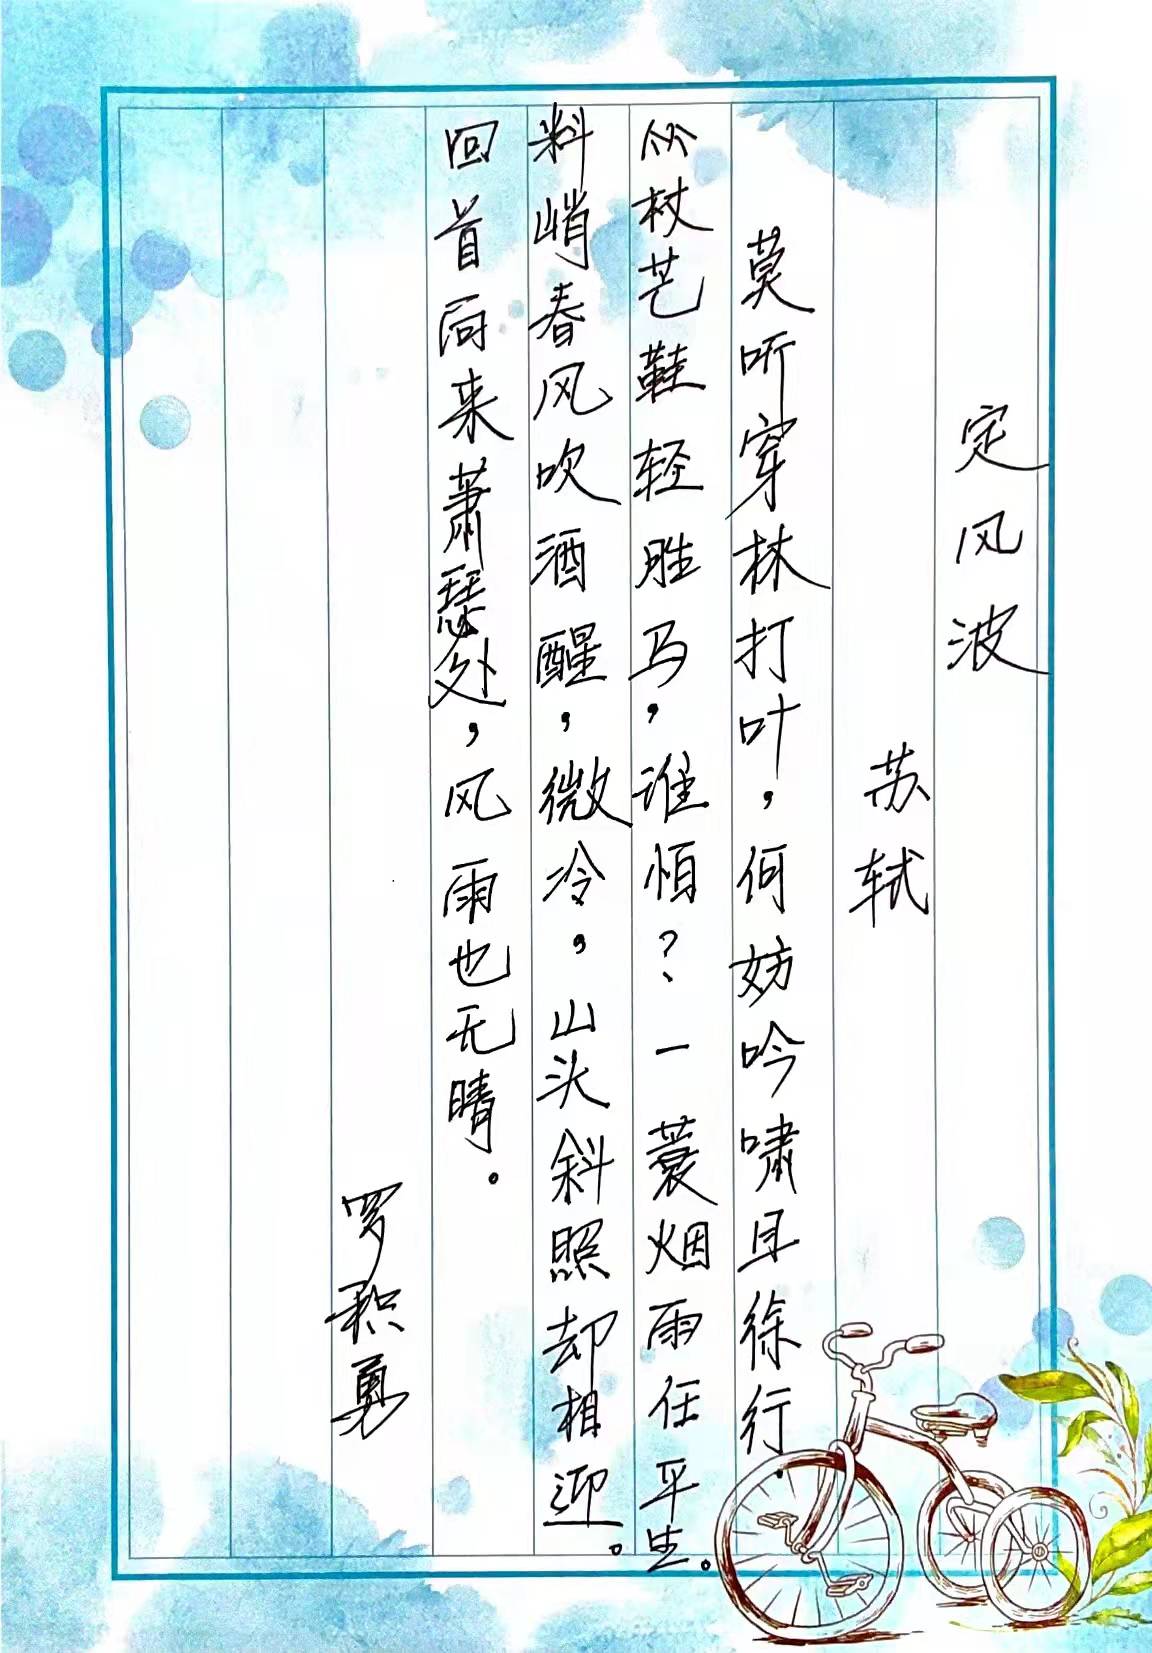 定风波
苏轼
莫听穿林打叶，何妨吟啸且徐行.
竹杖芒鞋轻胜马，谁怕？一蓑烟雨任平生。
料峭春风吹酒醒，微冷，山头斜照却相迎。
回首向来萧瑟处，风雨也无晴。
罗积勇